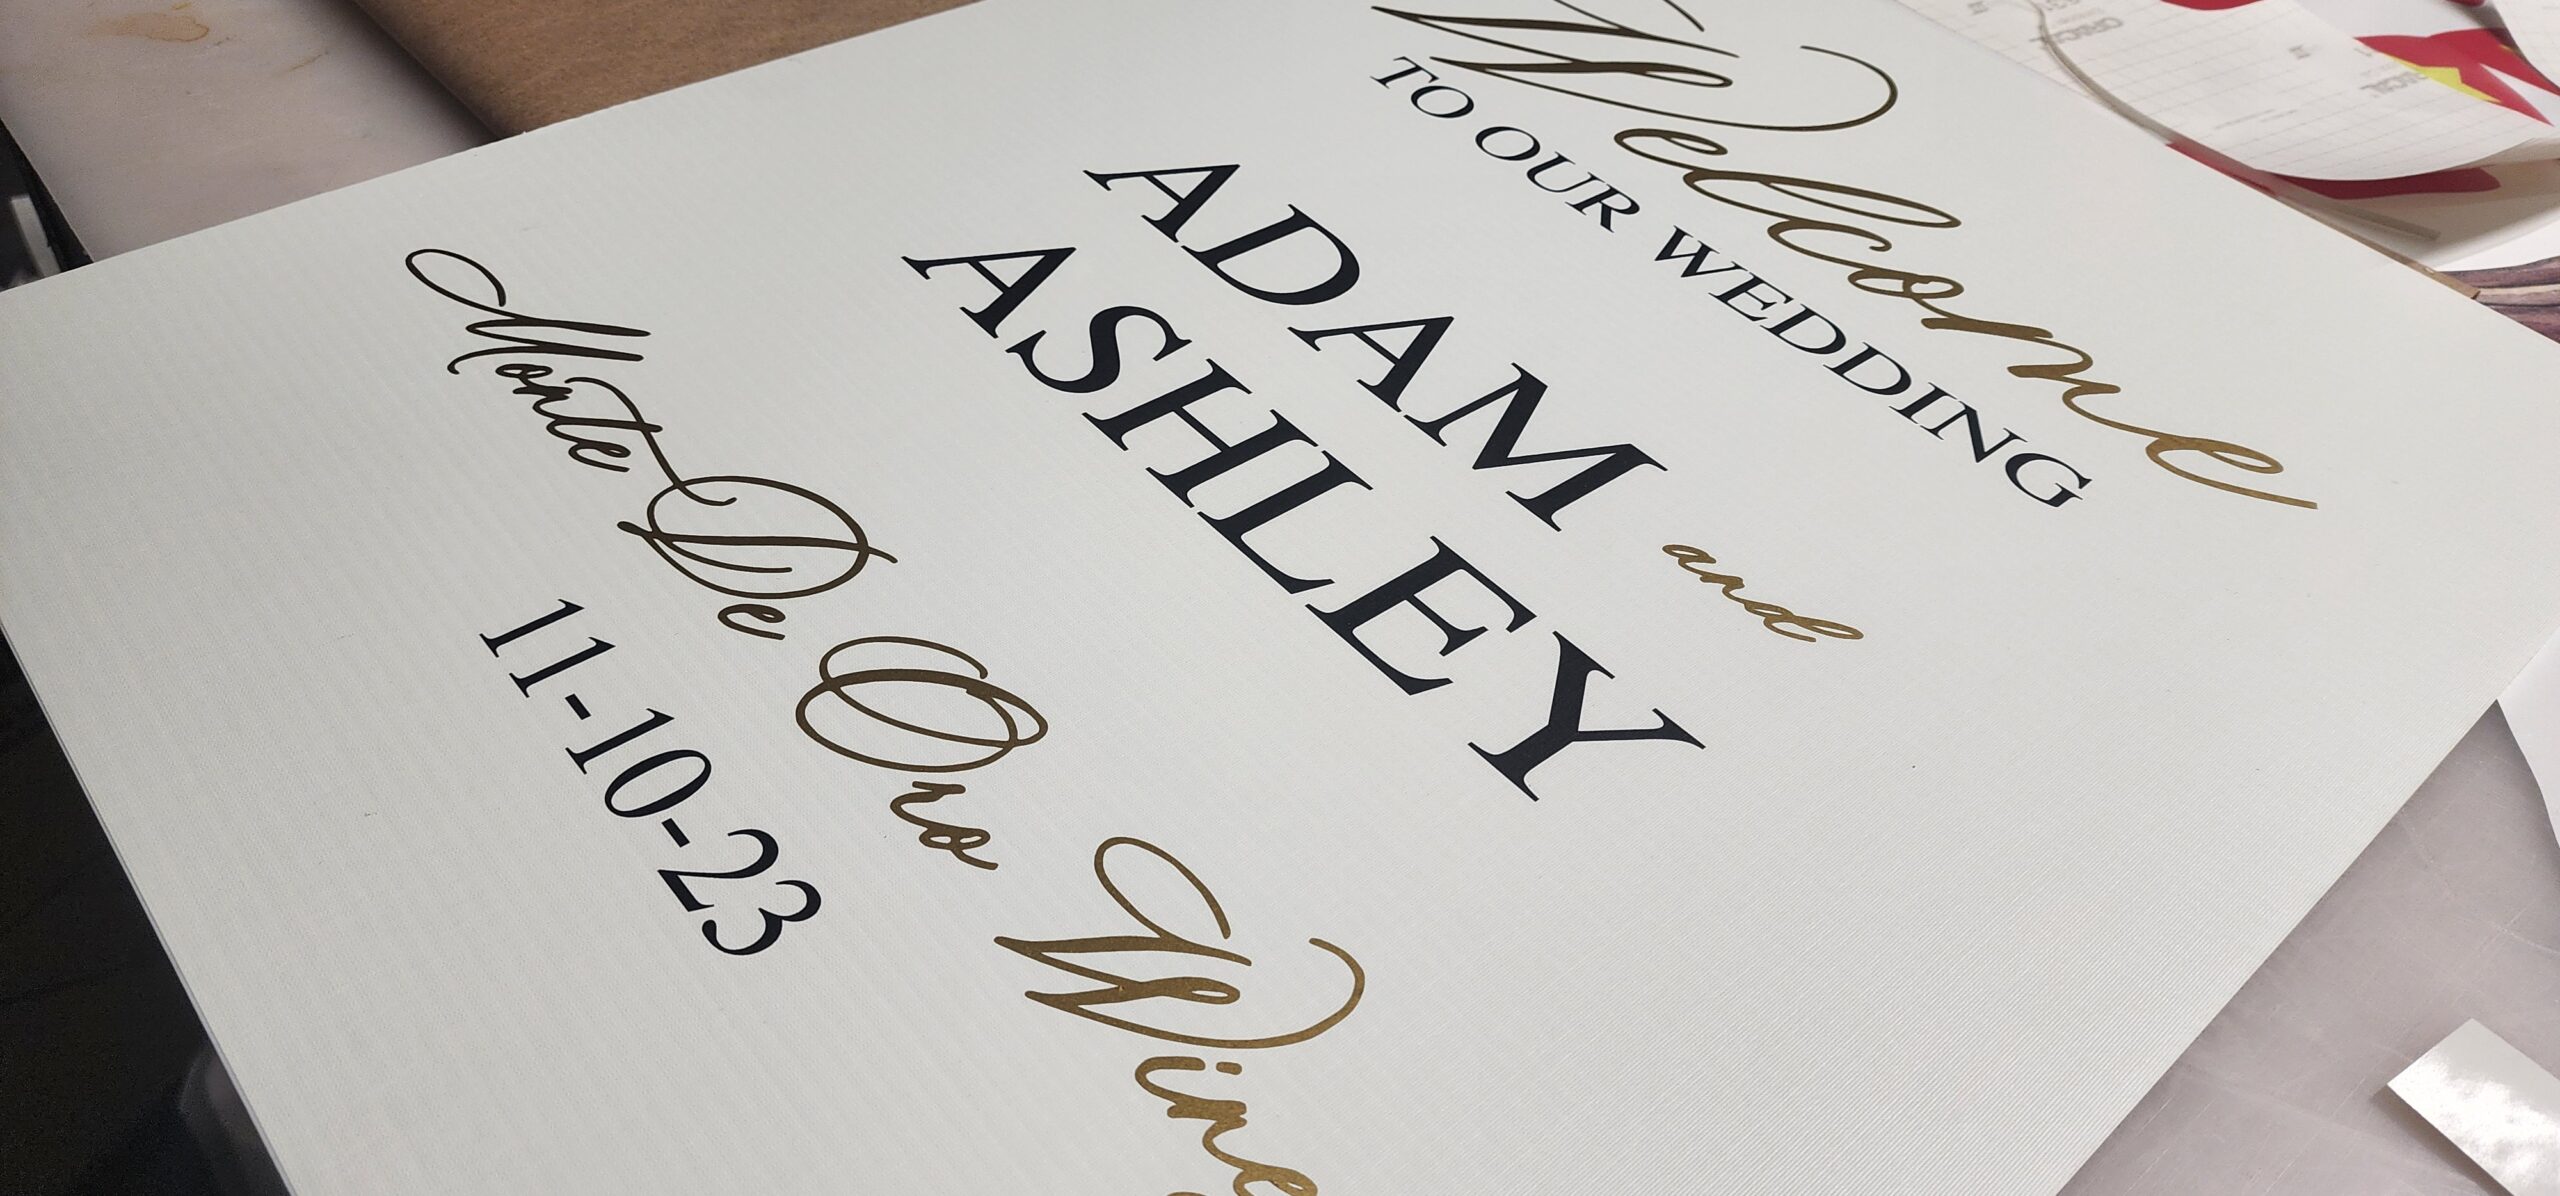 Welcome
TO OUR WEDDING
ADAM and
ASHLEY
Monte De Oro Wine
11-10-23